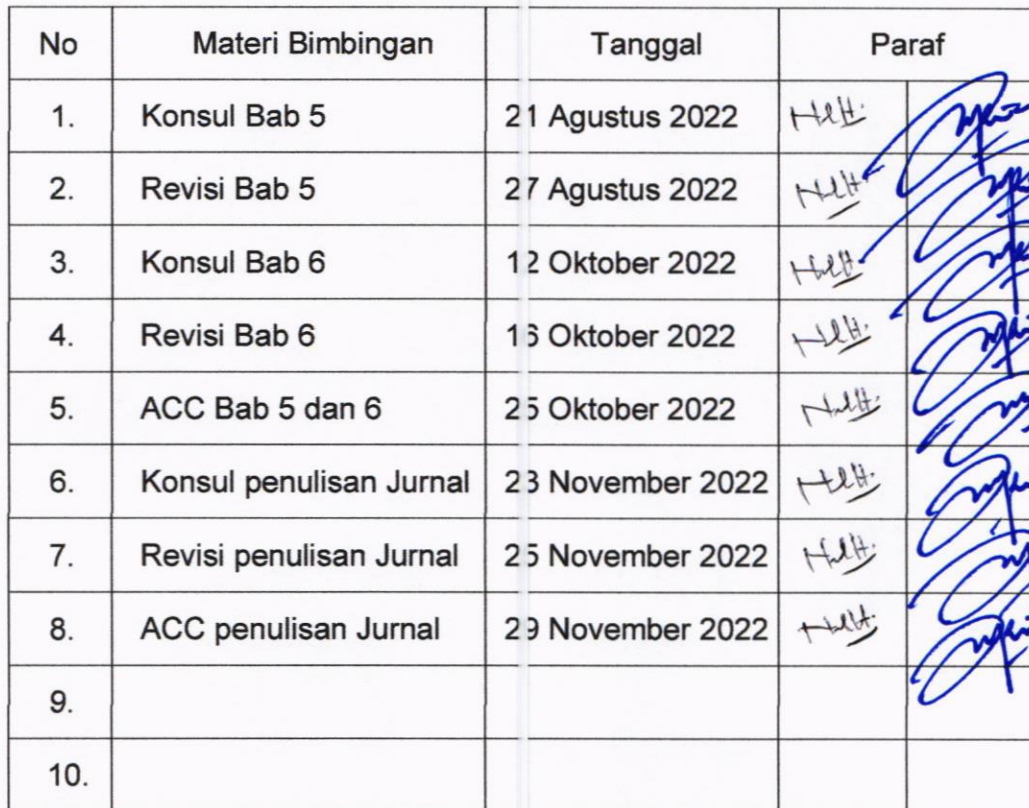 No Materi Bimbingan Tanggal Paraf
1. Konsul Bab 5 21 Agustus 2022
2. Revisi Bab 5 27 Agustus 2022
3. Konsul Bab 6 12 Oktober 2022
4. Revisi Bab 6 16 Oktober 2022
5. ACC Bab 5 dan 6 25 Oktober 2022
6. Konsul penulisan Jurnal 23 November 2022
7. Revisi penulisan Jurnal 25 November 2022
8. ACC penulisan Jurnal 29 November 2022
9.
10.